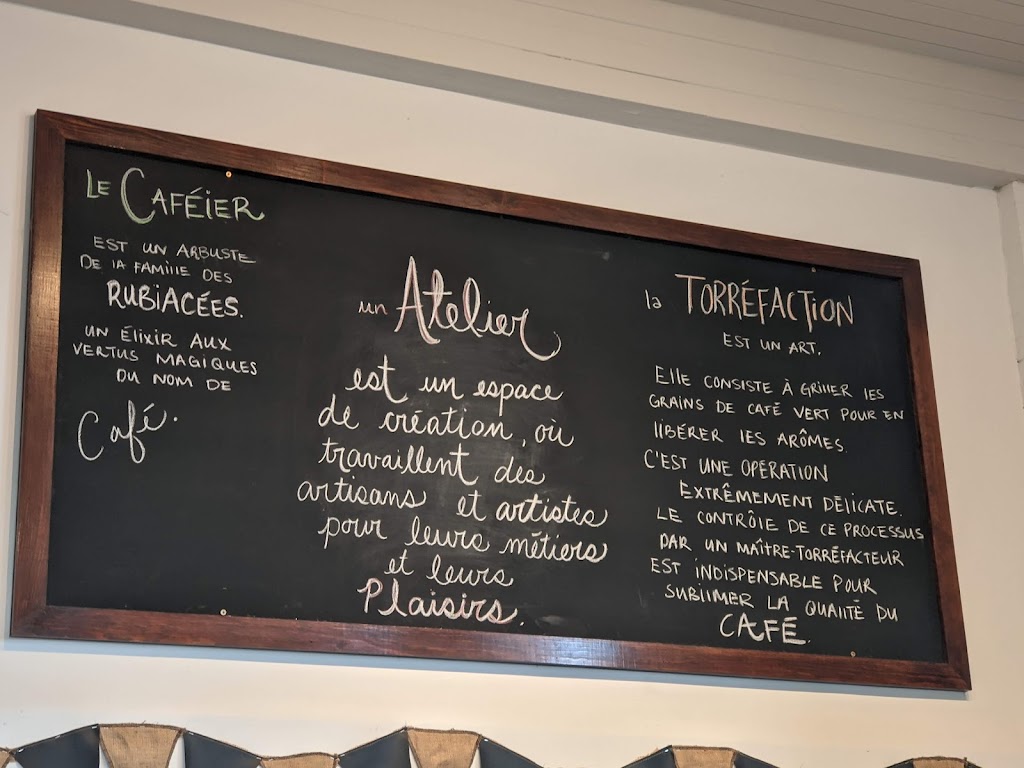 LE CAFÉIER
EST UN ARBUSTE
DE LA FAMILLE DES
RUBIACÉES.
UN ÉLIXIR AUX
VERTUS MAGIQUES
DU NOM DE
Café.
un Atelier
est un espace
de création, où
travaillent des
artisans et artistes
pour leurs métiers
et leurs
Plaisirs.
la TORRÉFACTION
EST UN ART.
ELLE CONSISTE À GRILLER LES
GRAINS DE CAFÉ VERT POUR EN
LIBÉRER LES ARÔMES.
C'EST UNE OPÉRATION
EXTRÊMEMENT DÉLICATE.
LE CONTRÔLE DE CE PROCESSUS
PAR UN MAÎTRE-TORRÉFACTEUR
EST INDISPENSABLE POUR
SUBLIMER LA QUALITÉ DU
CAFÉ.